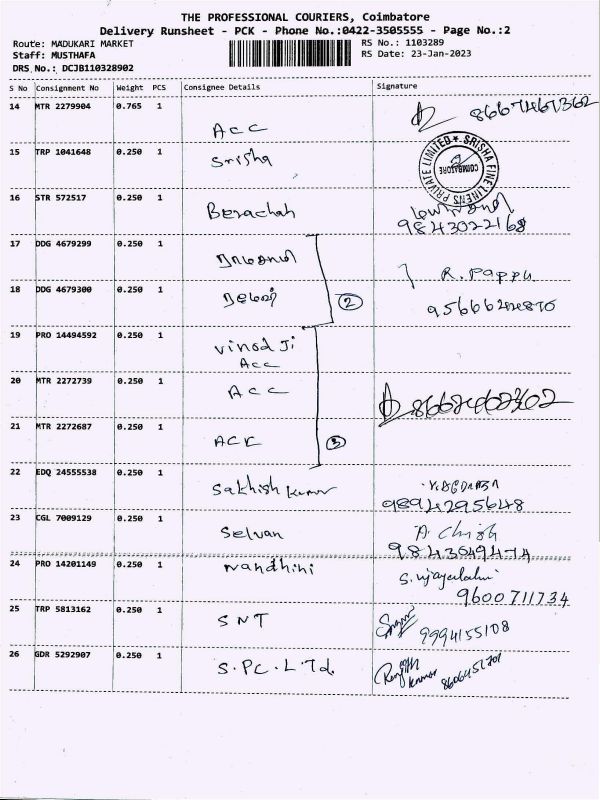 THE PROFESSIONAL COURIERS, Coimbatore
Delivery Runsheet - PCK - Phone No.:0422-3505555 - Page No.:2
Route: MADUKARI MARKET
RS No.: 1103289
Staff: MUSTHAFA
RS Date: 23-Jan-2023
DRS No.: DCJB110328902
S No Consignment No Weight PCS Consignee Details Signature
14 MTR 2279904 0.765 1 ACC
15 TRP 1041648 0.250 1 Srisha
PRIVATE LIMITED ★ SRISHA FINE LINENS COIMBATORE
16 STR 572517 0.250 1 Berachah 9843022168
17 DDG 4679299 0.250 1 R. Pappu
18 DDG 4679300 0.250 1 2
19 PRO 14494592 0.250 1 Vinod Ji
Acc
20 MTR 2272739 0.250 1 ACC
21 MTR 2272687 0.250 1 ACC 3
22 EDQ 24555538 0.250 1 Sakthish kumar 9894295648
23 CGL 7009129 0.250 1 Selvan
24 PRO 14201149 0.250 1 Nandhini
9600711734
25 TRP 5813162 0.250 1 SNT 9994155108
26 GDR 5292907 0.250 1 S.PC.L.Td.